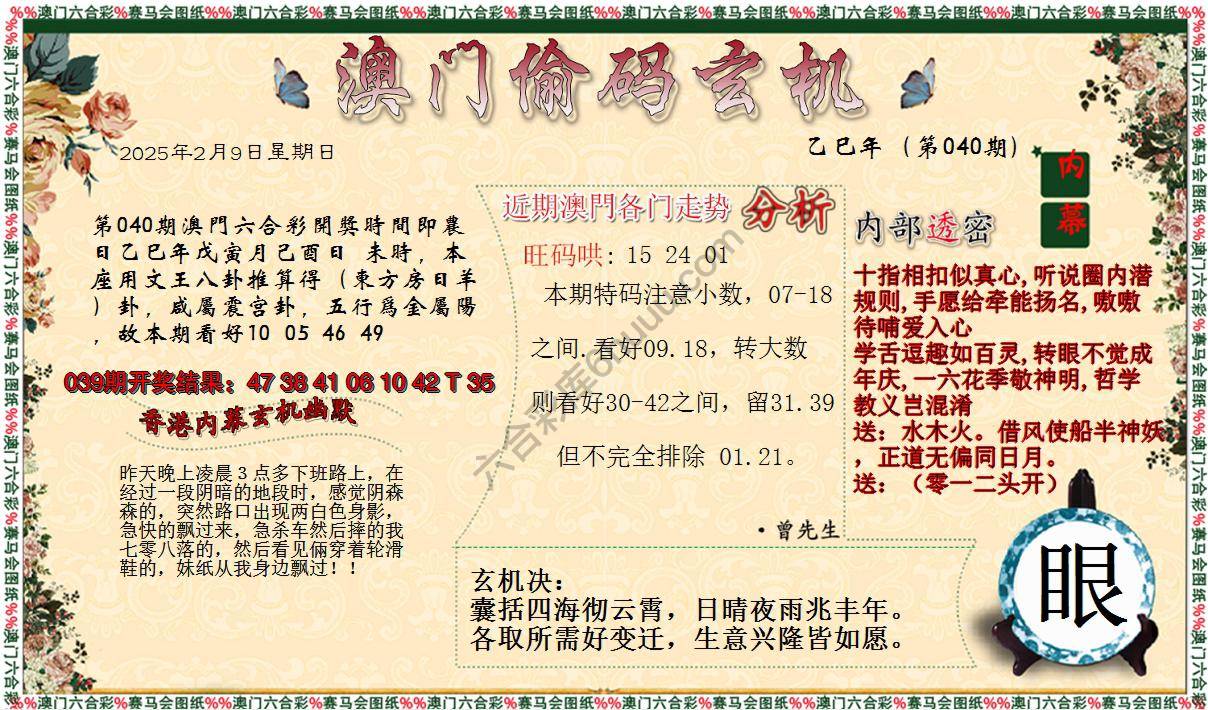 %%澳门六合彩%赛马会图纸%%澳门六合彩%赛马会图纸%%澳门六合彩%赛马会图纸%%澳门六合彩%赛马会图纸%%澳门六合彩%赛马会图纸%%澳门六合彩%赛马会图纸%%
澳门偷码玄机
2025年2月9日星期日
乙巳年（第040期）
内幕
第040期澳門六合彩開獎時間即農
日乙巳年戊寅月己酉日 未時，本
座用文王八卦推算得（東方房日羊
）卦，咸屬震宫卦，五行爲金屬陽
，故本期看好10 05 46 49
039期开奖结果：47 38 41 06 10 42 T 35
香港内幕玄机幽默
昨天晚上凌晨３点多下班路上，在
经过一段阴暗的地段时，感觉阴森
森的，突然路口出现两白色身影，
急快的飘过来，急杀车然后摔的我
七零八落的，然后看见俩穿着轮滑
鞋的，妹纸从我身边飘过！！
近期澳門各门走势 分析
旺码哄: 15 24 01
本期特码注意小数，07-18
之间.看好09.18，转大数
则看好30-42之间，留31.39
但不完全排除 01.21。
·曾先生
内部透密
十指相扣似真心,听说圈内潜
规则,手愿给牵能扬名,嗷嗷
待哺爱入心
学舌逗趣如百灵,转眼不觉成
年庆,一六花季敬神明,哲学
教义岂混淆
送：水木火。借风使船半神妖
，正道无偏同日月。
送：（零一二头开）
玄机决：
囊括四海彻云霄，日晴夜雨兆丰年。
各取所需好变迁，生意兴隆皆如愿。
眼
六合彩库6huuu.com
%%澳门六合彩%赛马会图纸%%澳门六合彩%赛马会图纸%%澳门六合彩%赛马会图纸%%澳门六合彩%赛马会图纸%%澳门六合彩%赛马会图纸%%澳门六合彩%赛马会图纸%%